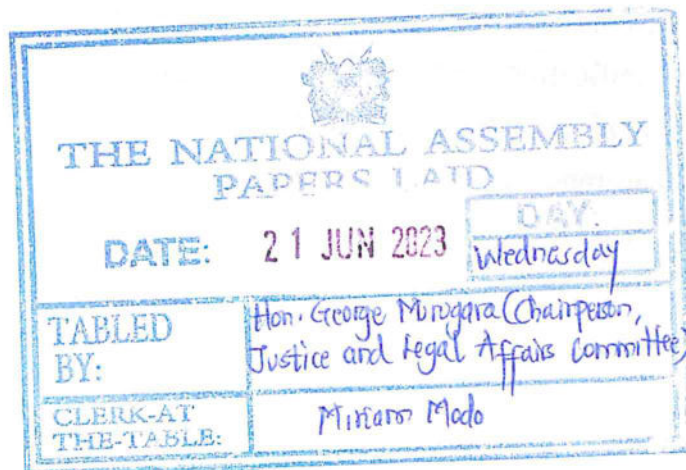 THE NATIONAL ASSEMBLY
PAPERS LAID
DATE: 21 JUN 2023
DAY:
Wednesday
TABLED BY:
Hon. George Murugara (Chairperson,
Justice and Legal Affairs Committee)
CLERK-AT THE-TABLE:
Miriam Modo